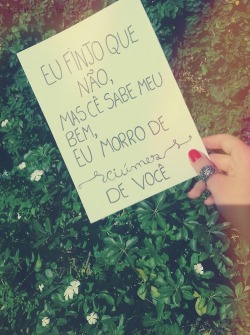 EU FINJO QUE
NÃO,
MAS CÊ SABE MEU
BEM,
EU MORRO DE
ciúmes
DE VOCÊ